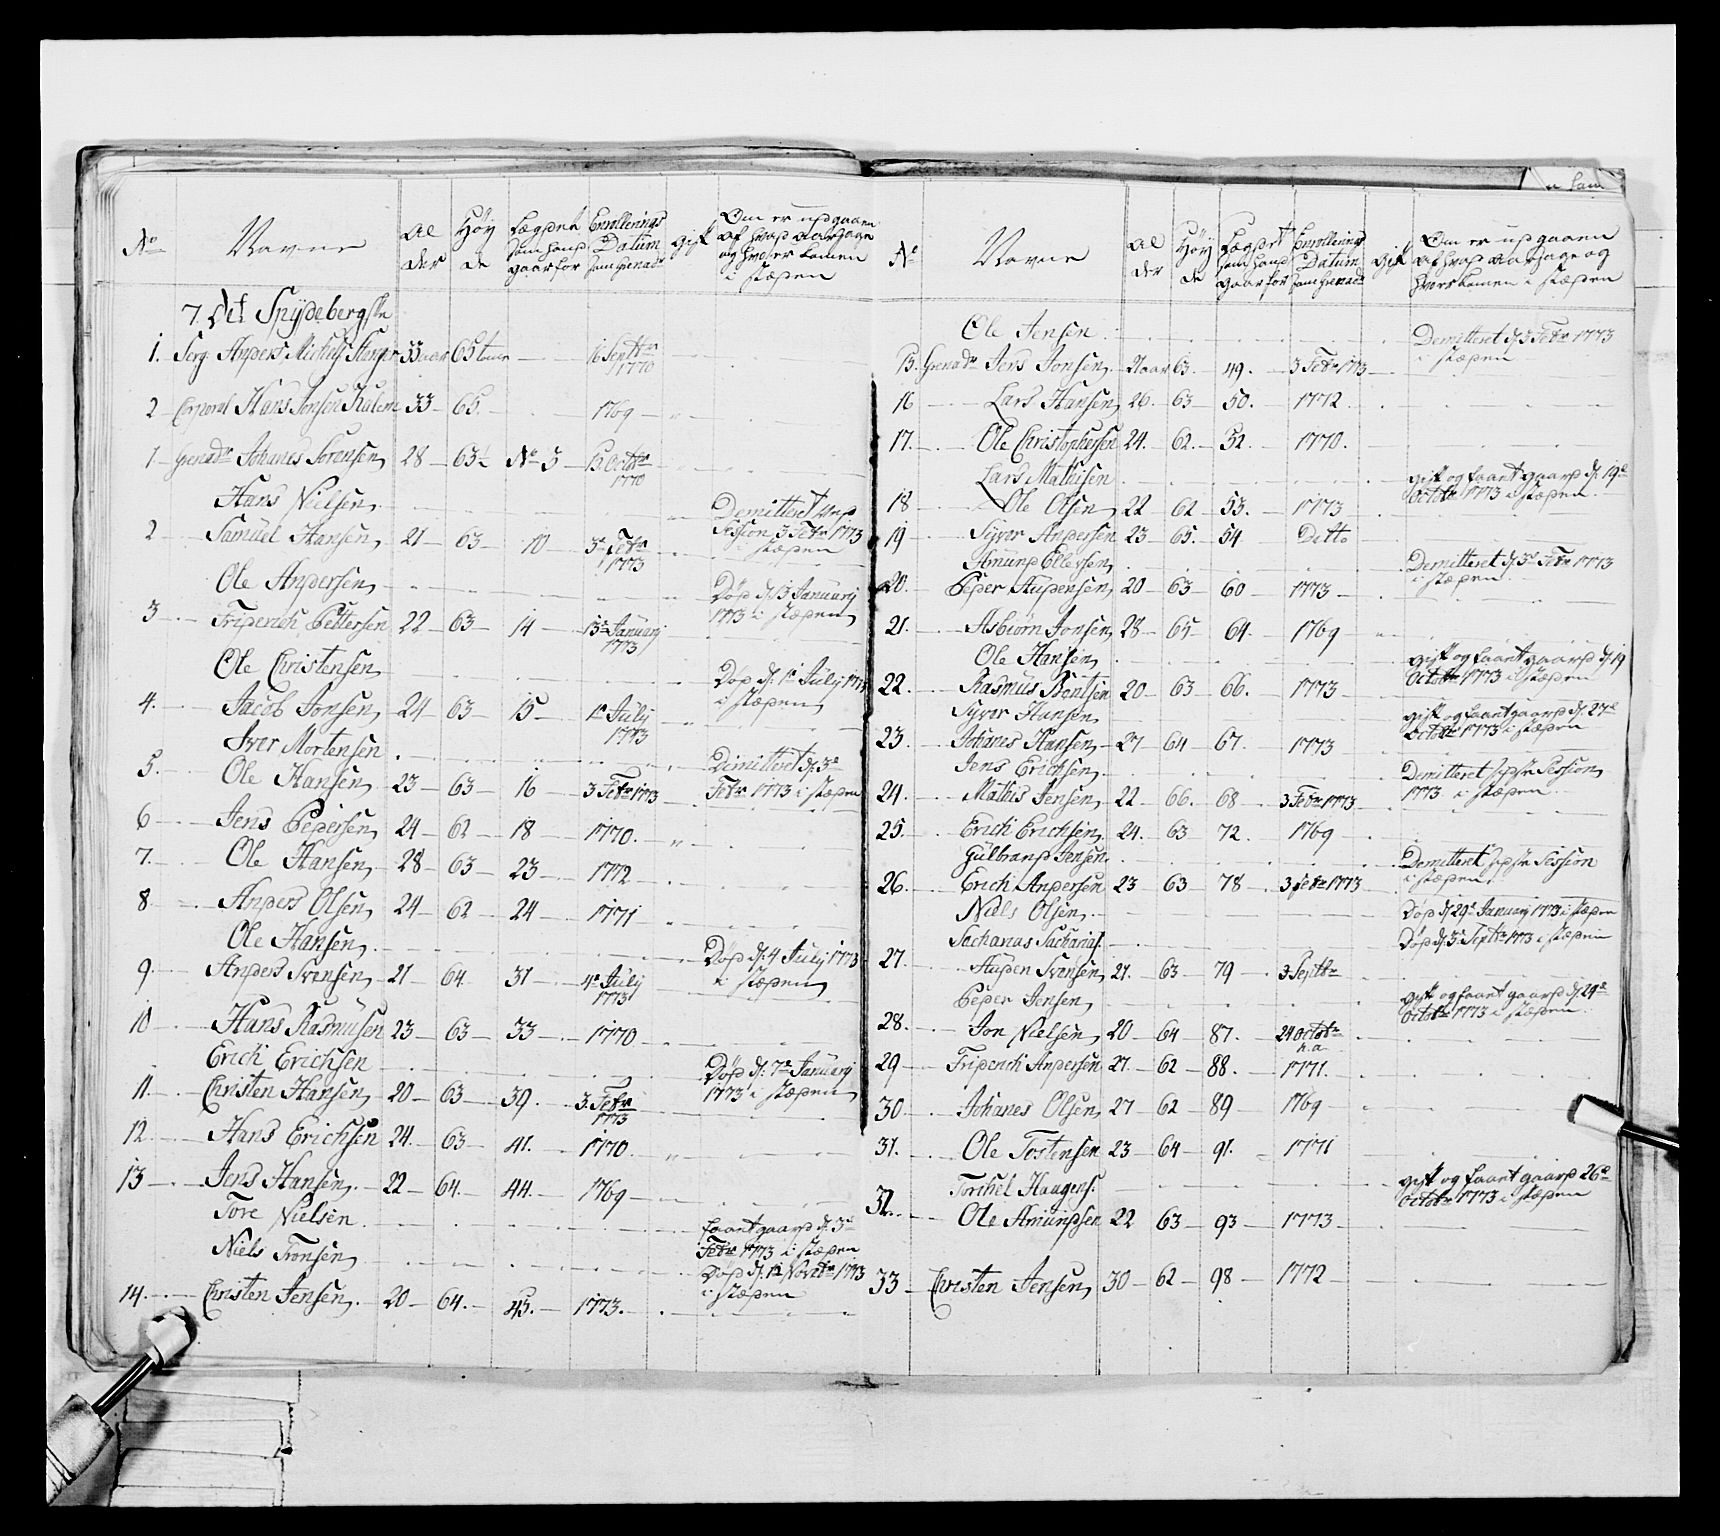 No Navne Al der Høy de Lægdet som hand gaar for Enrollerings Datum som Grenadr gift Om er udgaaen af hvad aarsage og hvis er komen i stæden
7. Det Spydebergske
1. Serg Anders Michels 33 aar 65 tmr — 16 Septbr 1770
2 Corporal Hans Jonsen Kalem 33 — 65. 1769 —
1 — Grenadr Johanes Sorensen 28 — 63½ No 3 — 13 Octobr 1770
Hans Nielsen Demitteret ved Session 3 Febr 1773 i stæden
2 — Samuel Hansen 21 — 63 — 10 — 3e Febr 1773
Ole Andersen Død d. 13 Januarij 1773 i stæden
3 — Friderich Pettersen 22 — 63 — 14 — 13e Januarij 1773
Ole Christensen Død d. 1e Julij 1773 i stæden
4. Jacob Jonsen 24 — 63 — 15 — 1e Julij 1773
Iver Mortensen Dimitteret d. 3e Febr 1773 i stæden
5. Ole Hansen 23 — 63 — 16 — 3 Febr 1773
6 — Jens Pedersen 24 — 62 — 18 — 1770.
7. Ole Hansen 28 — 63 — 23 — 1772
8 Anders Olsen 24 — 62 — 24 — 1771
Ole Hansen Død d. 4 Julij 1773 i stæden
9. Anders Svensen 21 — 64. 31 — 4e Julij 1773
10 Hans Rasmusen 23 — 63 — 33 — 1770
Erich Erichsen Død d. 7e Januarij 1773 i stæden
11. Christen Hansen 20 — 63 — 39. 3. Febr 1773
12. Hans Erichsen 24. — 63 — 41. — 1770.
13 — Jens Hansen 22 — 64. — 44. — 1769 —
Tore Nielsen faaet gaard d. 3e Febr 1773 i stæden
Niels Tronsen Død d. 12 Novbr 1773 i stæden
14. Christen Jensen 20 — 64. — 45. — 1773.
No Navne Al der Høy de Lægdet som hand gaar for Enrollerings Datum som Grenadr gift Om er udgaaen af hvad aarsage og hvers komen i stæden
Ole Jensen Demitteret d. 3 Febr 1773 i stæden
15. Grenadr Jens Jonsen 21 aar 63. 49. 3 Febr 1773
16 Lars Hansen 26. — 63 — 50. — 1772
17. Ole Christophersen 24. 62. — 52. — 1770.
Lars Mathisen gift og faaet gaard d. 19e Octobr 1773 i stæden
18 Ole Olsen 22 — 62 — 53. — 1773
19 Syver Andersen 23 — 65. 54 — Ditto
Amund Ellefsen Demitteret d. 3e Febr 1773 i stæden
20. Peder Audensen 20 — 63 — 60 — 1773 —
21. Asbiørn Jonsen 28 — 65 — 64. — 1769
Ole Hansen gift og faaet gaard d. 19 Octobr 1773 i stæden
22. Rasmus Bentsen 20 — 63 — 66. — 1773 —
Syver Hansen gift og faaet gaard d. 27e Octobr 1773 i stæden
23. Johanes Hansen 27 — 64 — 67. — 1773
Jens Erichsen Demitteret Session 1773 i stæden
24. Mathis Jensen 22 — 66. — 68 — 3 Febr 1773
25. Erich Erichsen 24. 63 72. — 1769 —
Gulbrand Jensen Demitteret Session i stæden
26. Erich Andersen 23 63 — 78 — 3 Febr 1773
Niels Olsen Død d. 29e Januarij 1773 i stæden
Sacharias Sacharias. Død d. 3e Septbr 1773 i stæden
27. Auden Svensen 21. — 63 — 79 — 3 Septbr
Peder Jensen gift og faaet gaard d. 29e Octobr 1773 i stæden
28. Jon Nielsen 20 — 64 — 87. — 24 Octobr h. a
29 — Friderich Andersen 27. — 62 — 88. — 1771.
30 Johanes Olsen 27 — 62 — 89 — 1769
31. Ole Tostensen 23 — 64 — 91. — 1771
Torchel Haagens. gift og faaet gaard 26e Octobr 1773 i stæden
32. Ole Amundsen 22 63 — 93 — 1773 —
33 Christen Jensen 30 — 62 — 98 — 1772 —